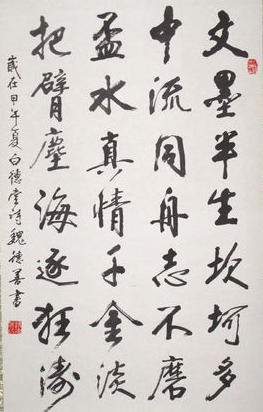 文墨半生坎坷多
中流同舟志不磨
盃水真情千金淡
把臂塵海逐狂濤
歲在甲午夏白德詩魏德善書